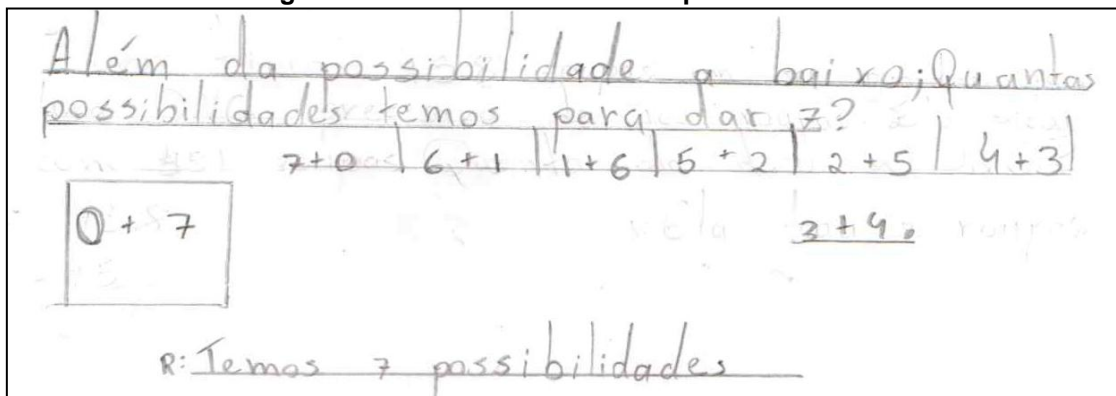 Além da possibilidade a baixo; Quantas
possibilidades temos para dar 7?
7+0 | 6+1 | 1+6 | 5+2 | 2+5 | 4+3|
0+7
3+4.
R: Temos 7 possibilidades